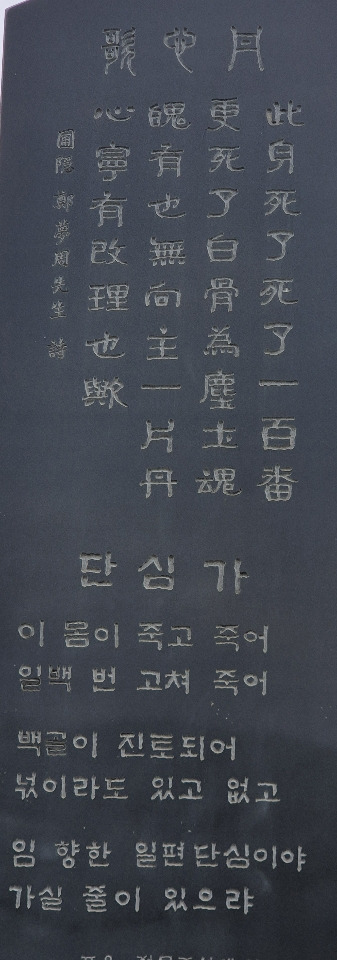 丹心歌
此身死了死了一百番
更死了白骨為塵土魂
魄有也無向主一片丹
心寧有改理也歟
圃隱 鄭夢周先生 詩
단심가
이 몸이 죽고 죽어
일백 번 고쳐 죽어
백골이 진토되어
넋이라도 있고 없고
임 향한 일편단심이야
가실 줄이 있으랴